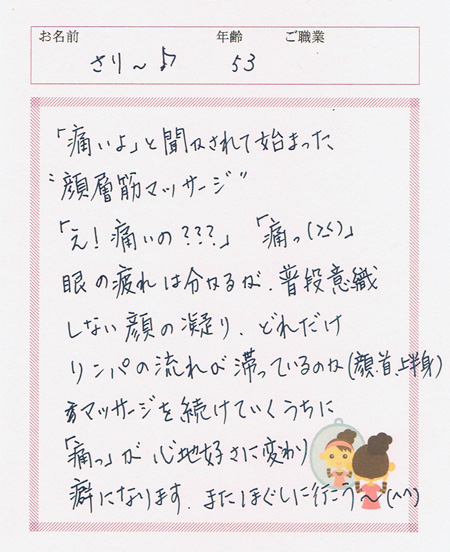 お名前 年齢 ご職業
さりー~♪ 53
「痛いよ」と聞かされて始まった
"顔層筋マッサージ"
「え!痛いの???」「痛っ(≧≦)」
眼の疲れは分かるが、普段意識
しない顔の凝り、どれだけ
リンパの流れが滞っているのか(顔、首、上半身)
マッサージを続けていくうちに
「痛っ」が心地好さに変わり
癖になります。またほぐしに行こう~(^^)